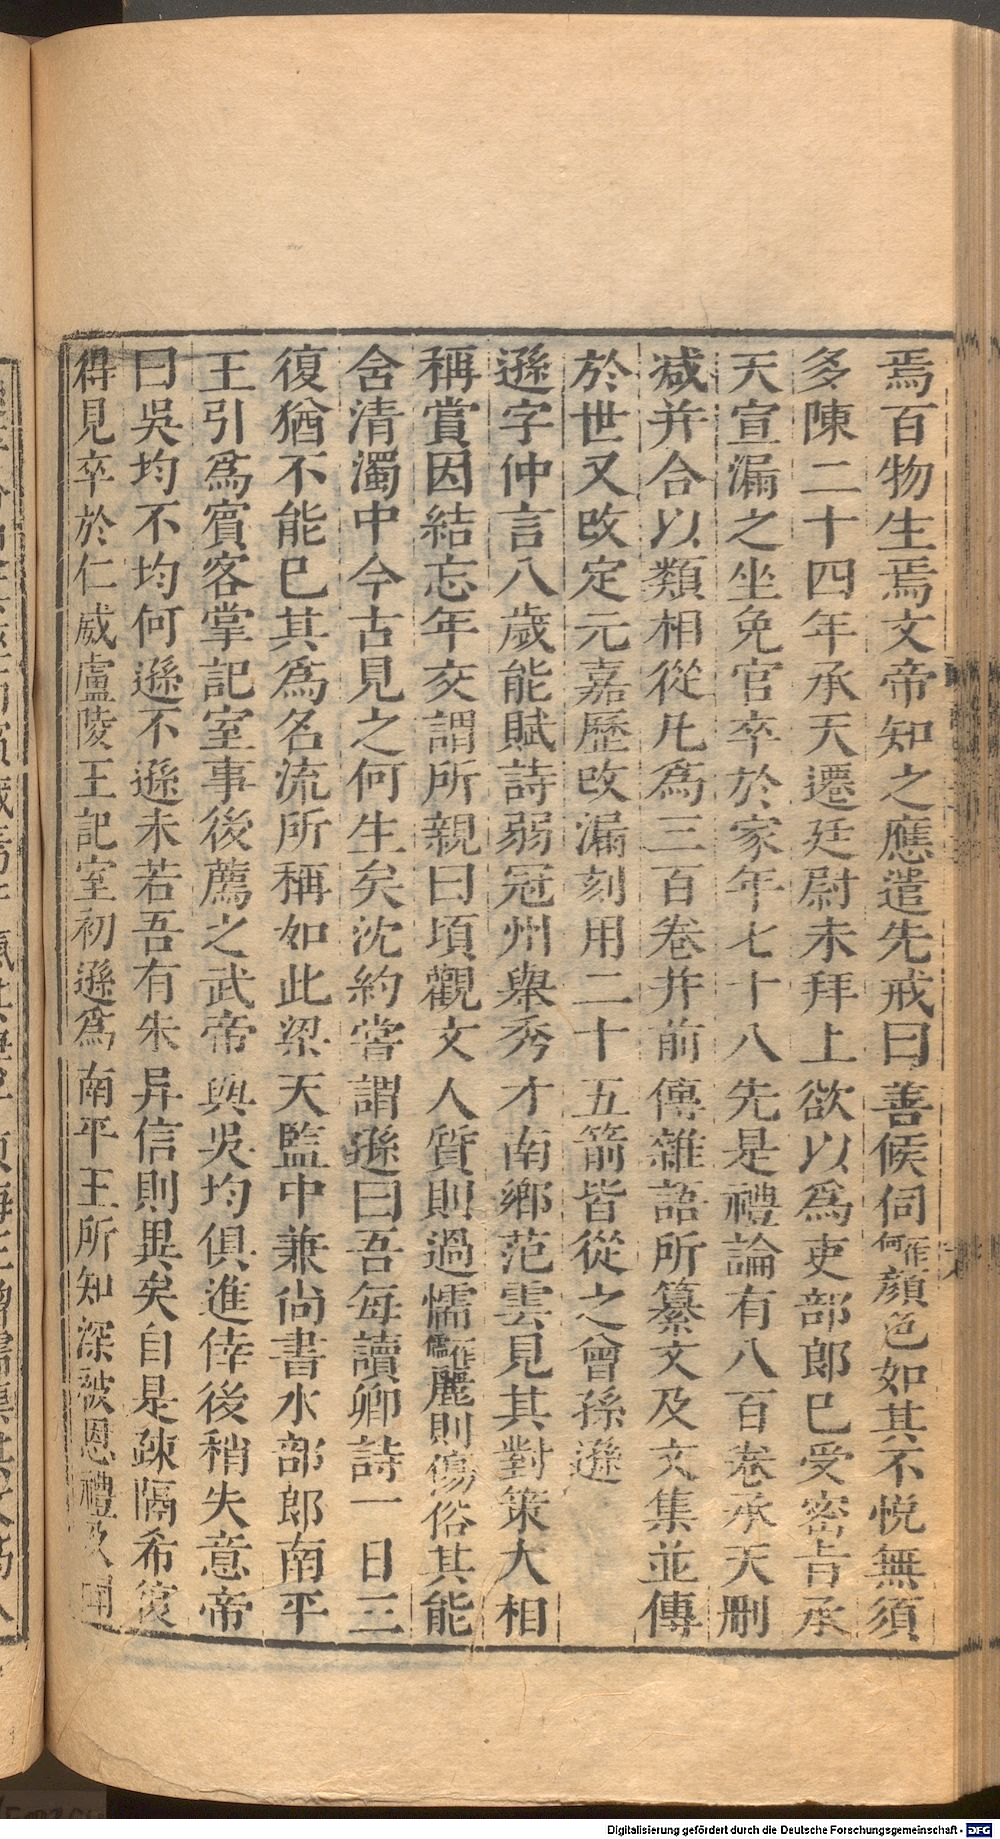 焉百物生焉文帝知之應遣先戒曰善候伺一作何顏色如其不悅無須
多陳二十四年承天遷廷尉未拜上欲以爲吏部郎已受密旨承
天宣漏之坐免官卒於家年七十八先是禮論有八百卷承天刪
减并合以類相從凡爲三百卷并前傳雜語所纂文及文集並傳
於世又改定元嘉歷改漏刻用二十五箭皆從之曾孫遜
遜字仲言八歲能賦詩弱冠州舉秀才南鄉范雲見其對策大相
稱賞因結忘年交謂所親曰頃觀文人質則過懦一作儒麗則傷俗其能
含清濁中今古見之何生矣沈約嘗謂遜曰吾每讀卿詩一日三
復猶不能已其爲名流所稱如此梁天監中兼尚書水部郎南平
王引爲賓客掌記室事後薦之武帝與吳均俱進倖後稍失意帝
曰吳均不均何遜不遜未若吾有朱异信則異矣自是疎隔希復
得見卒於仁威盧陵王記室初遜爲南平王所知深被恩禮及聞
Digitalisierung gefördert durch die Deutsche Forschungsgemeinschaft - DFG